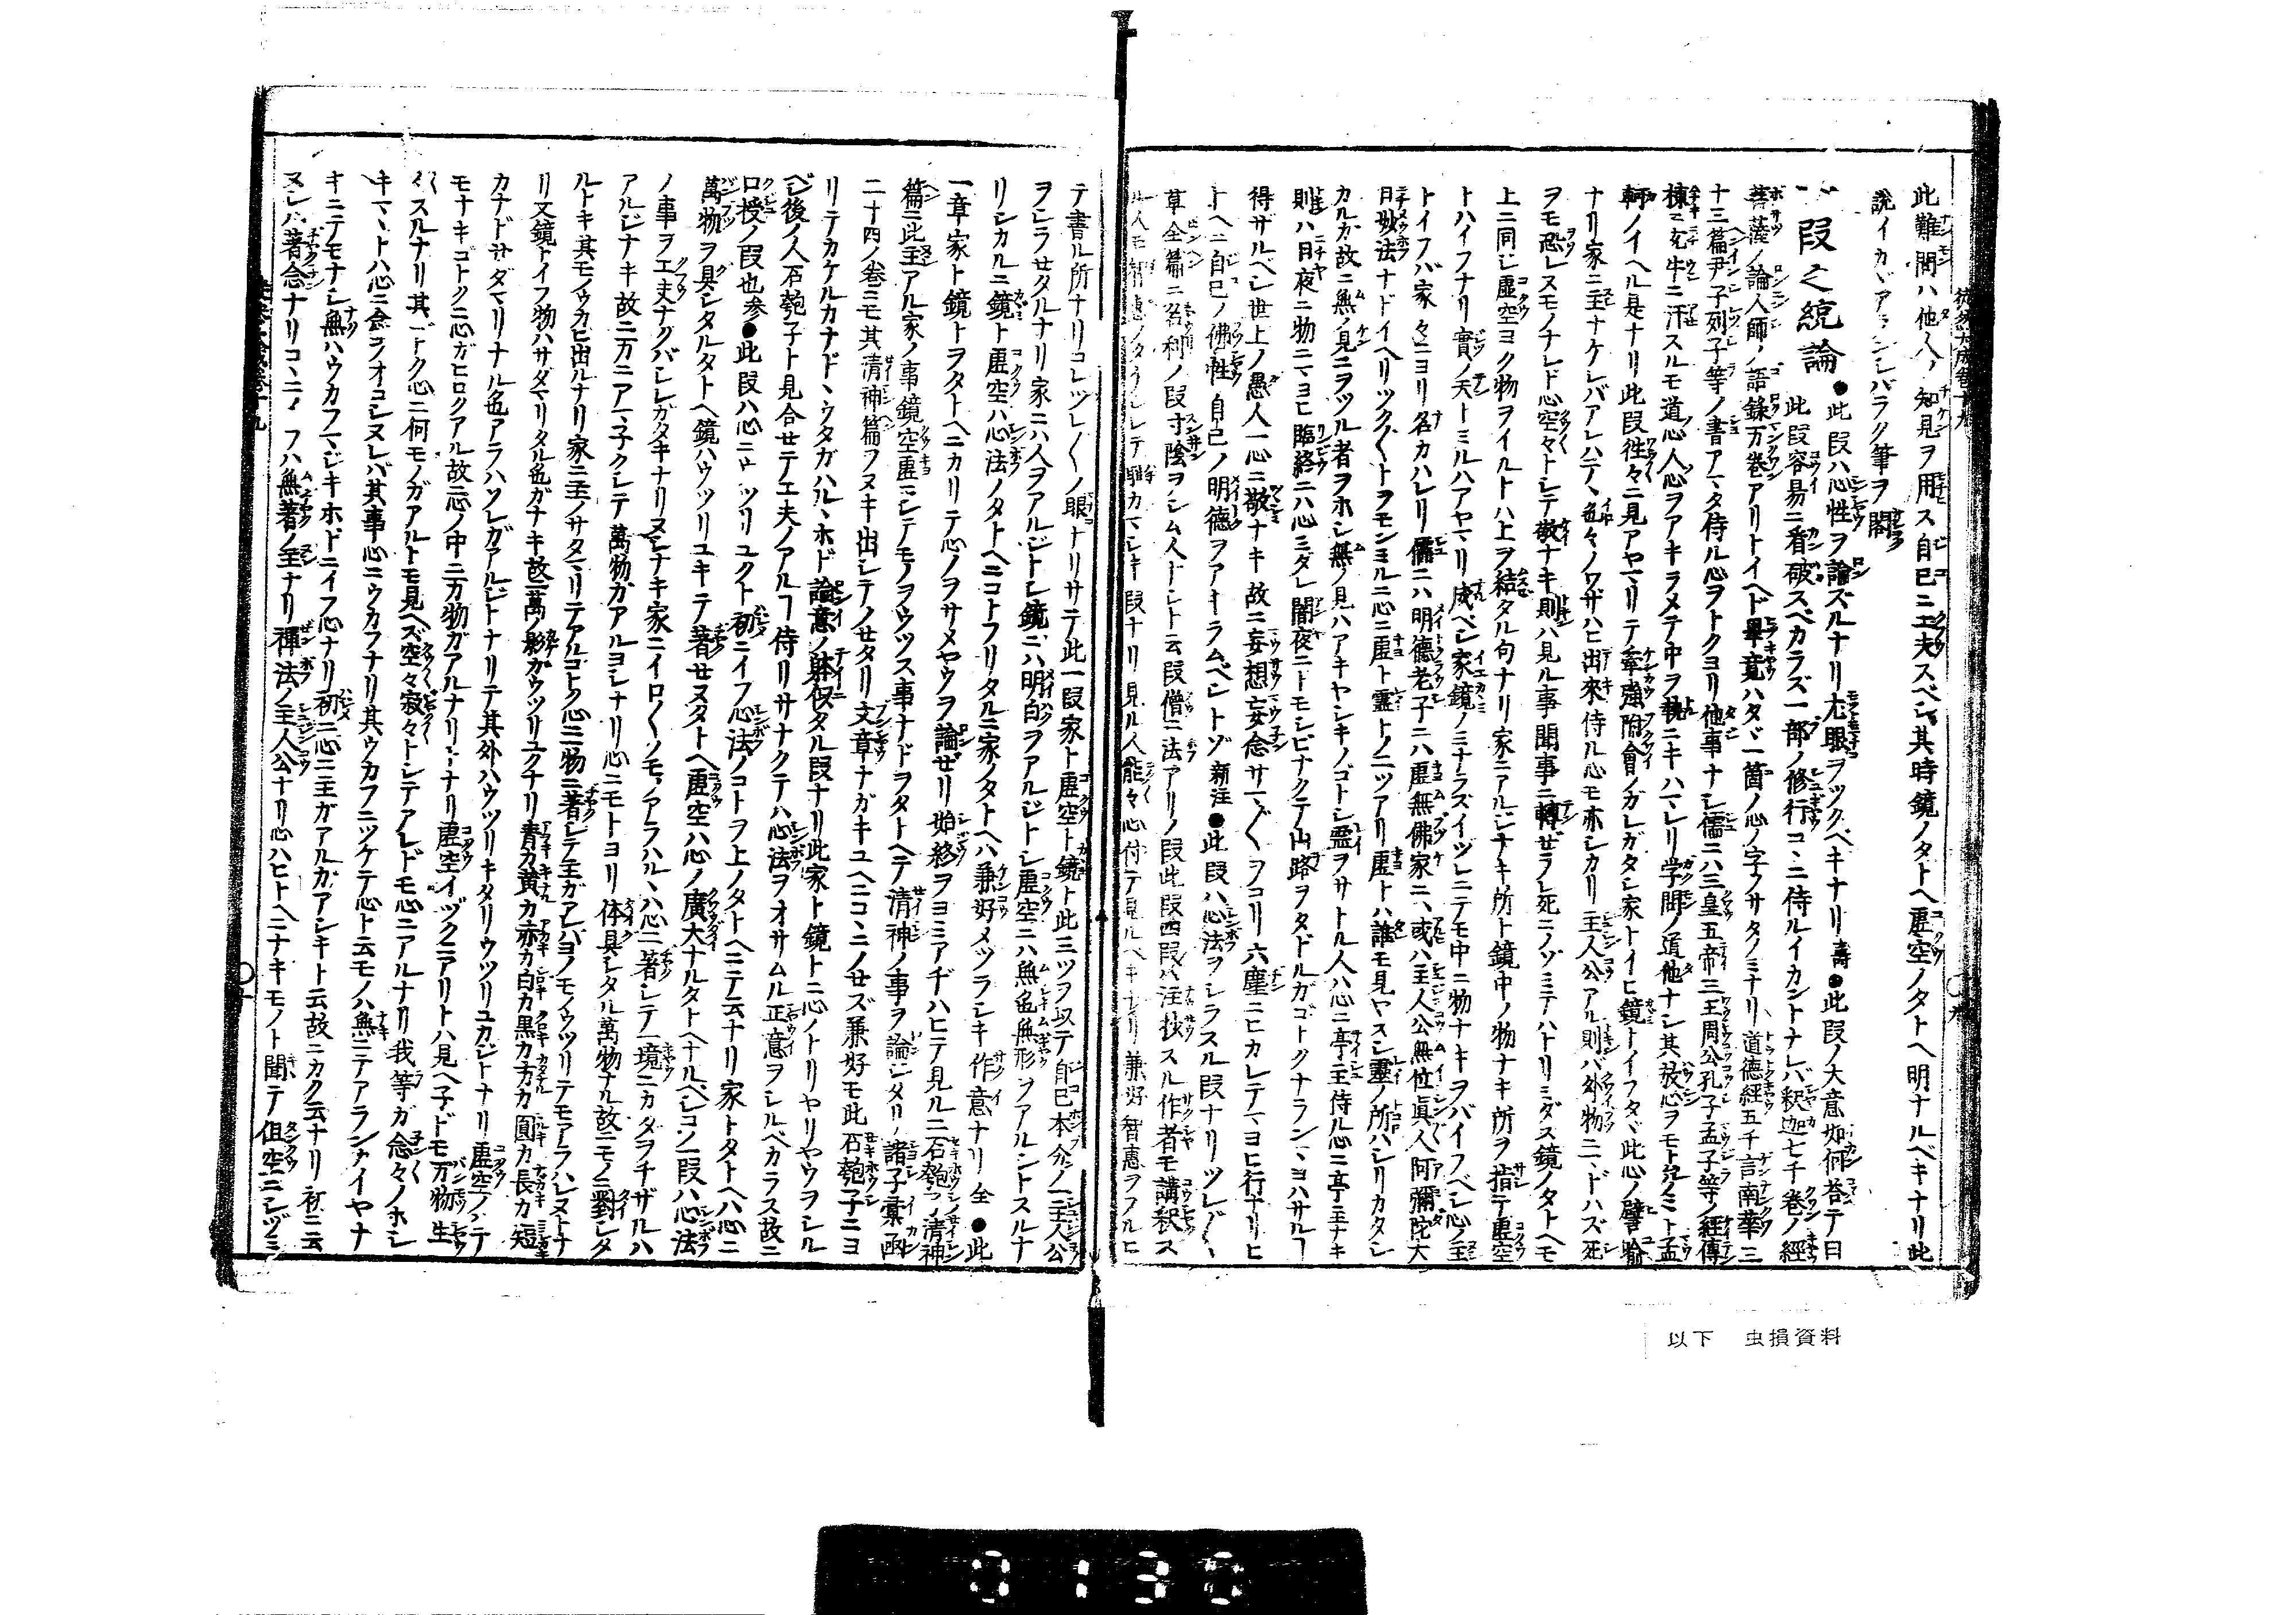 此難問ハ他人ノ知見ヲ用ス自己ニ工夫スベシ其時鏡ノタトヘ虚空ノタトヘ明ナルベキナリ此
説イカヾアランシバラク筆ヲ閣
一段之統論 ●此段ハ心性ヲ論ズルナリ尤眼ヲツクベキナリ壽●此段ノ大意如何答テ曰
此段容易ニ看破スベカラズ一部ノ修行コヽニ侍ルイカントナレバ釈迦七千巻ノ經
菩薩ノ論人師ノ語録万巻アリトイヘド畢竟ハタヾ一箇ノ心ノ字ノサタノミナリ道徳經五千言南華三
十三篇尹子列子等ノ書アマタ侍ル心ヲトクヨリ他事ナシ儒ニハ三皇五帝三王周公孔子孟子等ノ經傳
棟ニ充牛ニ汗スルモ道心人心ヲアキラメテ中ヲ執ニキハマレリ学問ノ道他ナシ其放心ヲモトムルノミト孟
軻ノイヘル是ナリ此段往々ニ見アヤマリテ牽強附會ノガレガタシ家トイヒ鏡トイフタヾ此心ノ譬喩
ナリ家ニ主ナケレバアレハテヽ色々ノワザハヒ出來侍ル心モ亦シカリ主人公アル則バ外物ニヽドハズ死
ヲモ恐レスモノナレド心空々トシテ敬ナキ則ハ見ル事聞事ニ轉ゼラレ死ニノゾミテハトリミダス鏡ノタトヘモ
上ニ同ジ虚空ヨク物ヲイルトハ上ヲ結タル句ナリ家ニアルジナキ所ト鏡中ノ物ナキ所ヲ指テ虚空
トハイフナリ實ノ天トミルハアヤマリ成ベシ家鏡ノミナラズイヅレニテモ中ニ物ナキヲバイフベシ心ノ主
トイフハ家々ニヨリ名カハレリ儒ニハ明徳老子ニハ虚無佛家ニハ或ハ主人公無位眞人阿彌陀大
日妙法ナドイヘリツク〲トヲモンミルニ心ニ虚ト霊トノ二ツアリ虚トハ誰モ見ヤスシ靈ノ所ハシリカタシ
カルガ故ニ無ノ見ニヲツル者ヲホシ無ノ見ハアキヤシキノゴトシ霊ヲサトル人ハ心ニ亭主侍ル心ニ亭主ナキ
則ハ日夜ニ物ニマヨヒ臨終ニハ心ミダレ闇夜ニトモシビナクテ山路ヲタドルガゴトクナラン
得ザルベシ世上ノ愚人一心ニ敬ナキ故ニ妄想妄念サマ〲ヲコリ六塵ニヒカレテマヨヒ行ナリヒ
トヘニ自己ノ佛性自己ノ明徳ヲアキラムベシトゾ新注●此段ハ心法ヲシラスル段ナリツレ〲
草全篇ニ名利ノ段寸陰ヲシム人ナシト云段僧ニ法アリノ段此段四段ハ注抄スル作者モ講釈ス
見ル人能々心付テ見ルベキナリ兼好智恵ラフルヒ
テ書ル所ナリコレツレ〲ノ眼ナリサテ此一段家ト虚空ト鏡ト此三ツヲ以テ自己本分ノ主人公
ヲシラセタルナリ家ニハ人ヲアルジトシ鏡ニハ明白ヲアルジトシ虚空ニハ無色無形ヲアルシトスルナ
リシカルニ鏡ト虚空ハ心法ノタトヘニコトフリタルニ家ノタトヘハ兼好メヅラシキ作意ナリ全●此
一章家ト鏡トヲタトヘニカリテ心ノヲサメヤウヲ論ぜリ始終ヲヨミアヂハヒテ見ルニ石匏子ノ清神
篇ニ此主アル家ノ事鏡空虚ニシテモノヲウツス事ナドヲタトヘテ清神ノ事ヲ論シタリ諸子彙函
二十四ノ巻ニモ其清神篇ヲヌキ出シテノせタリ文章ナガキユヘニコヽニノせズ兼好モ此石匏子ニヨ
リテカケルカナドヽウタガハルヽホド論意ノ躰似タル段ナリ此家ト鏡トニ心ノトリヤリヤウヲシル
ベシ後ノ人石匏子ト見合せテ工夫ノアルヿ侍リサナクテハ心法ヲオサムル正意ヲシルベカラス故ニ
口授ノ段也参●此段ハ心ニウツリユクト初ニイフ心法ノコトヲ上ノタトヘニテ云ナリ家トタトヘハ心ニ
萬物ヲ具シタルタトヘ鏡ハウツリユキテ著せヌタトヘ虚空ハ心ノ廣大ナルタトヘナルベシコノ一段ハ心法
ノ事ヲ工夫ナクバシレガタキナリヌシナキ家ニイロ〱ノモノアラハルヽハ心ニ著シテ一境ニカタヲチザルハ
アルジナキ故ニ万ニアマ子クシテ萬物ガアルヨシナリ心ニモトヨリ体具シタル萬物ナル故ニモノニ對シタ
ルトキ其モノウカビ出ルナリ家ニ主ノサタマリテアルゴトク心ニ物ニ著シテ主ガアレバヨノモノウツリテモアラハレヌトナ
リ又鏡トイフ物ハサダマリタル色ガナキ故ニ萬ノ影ガウツリユクナリ青カ黄カ赤カ白カ黒カ方カ圓カ長カ短
カナドサダマリナル色アラハソレガアルジトナリテ其外ハウツリキタリウツリユカジトナリ虚空ノハテ
モナキゴトクニ心ガヒロクアル故ニ心ノ中ニ万物ガアルナリトナリ虚空イヅクニアリトハ見ヘ子ドモ万物生
〱スルナリ其ゴトク心ニ何モノガアルトモ見ヘズ空々寂々トシテアレドモ心ニアルナリ我等ガ念々ノホシ
キマヽトハ心ニ念ヲオコシヌレバ其事心ニウカフナリ其ウカフニツケテ心ト云モノハ無ニテアランナイヤナ
キニテモナシ無ハウカフマジキホドニイフ心ナリ初ニ心ニ主ガアルガアシキト云故ニカク云ナリ初ニ云
ヌシハ著念ナリコヽニイフハ無著ノ主ナリ禅法ノ主人公ナリ心ハヒトヘニナキモノト聞テ但空ニシヅミ
以下 虫損資料
0130